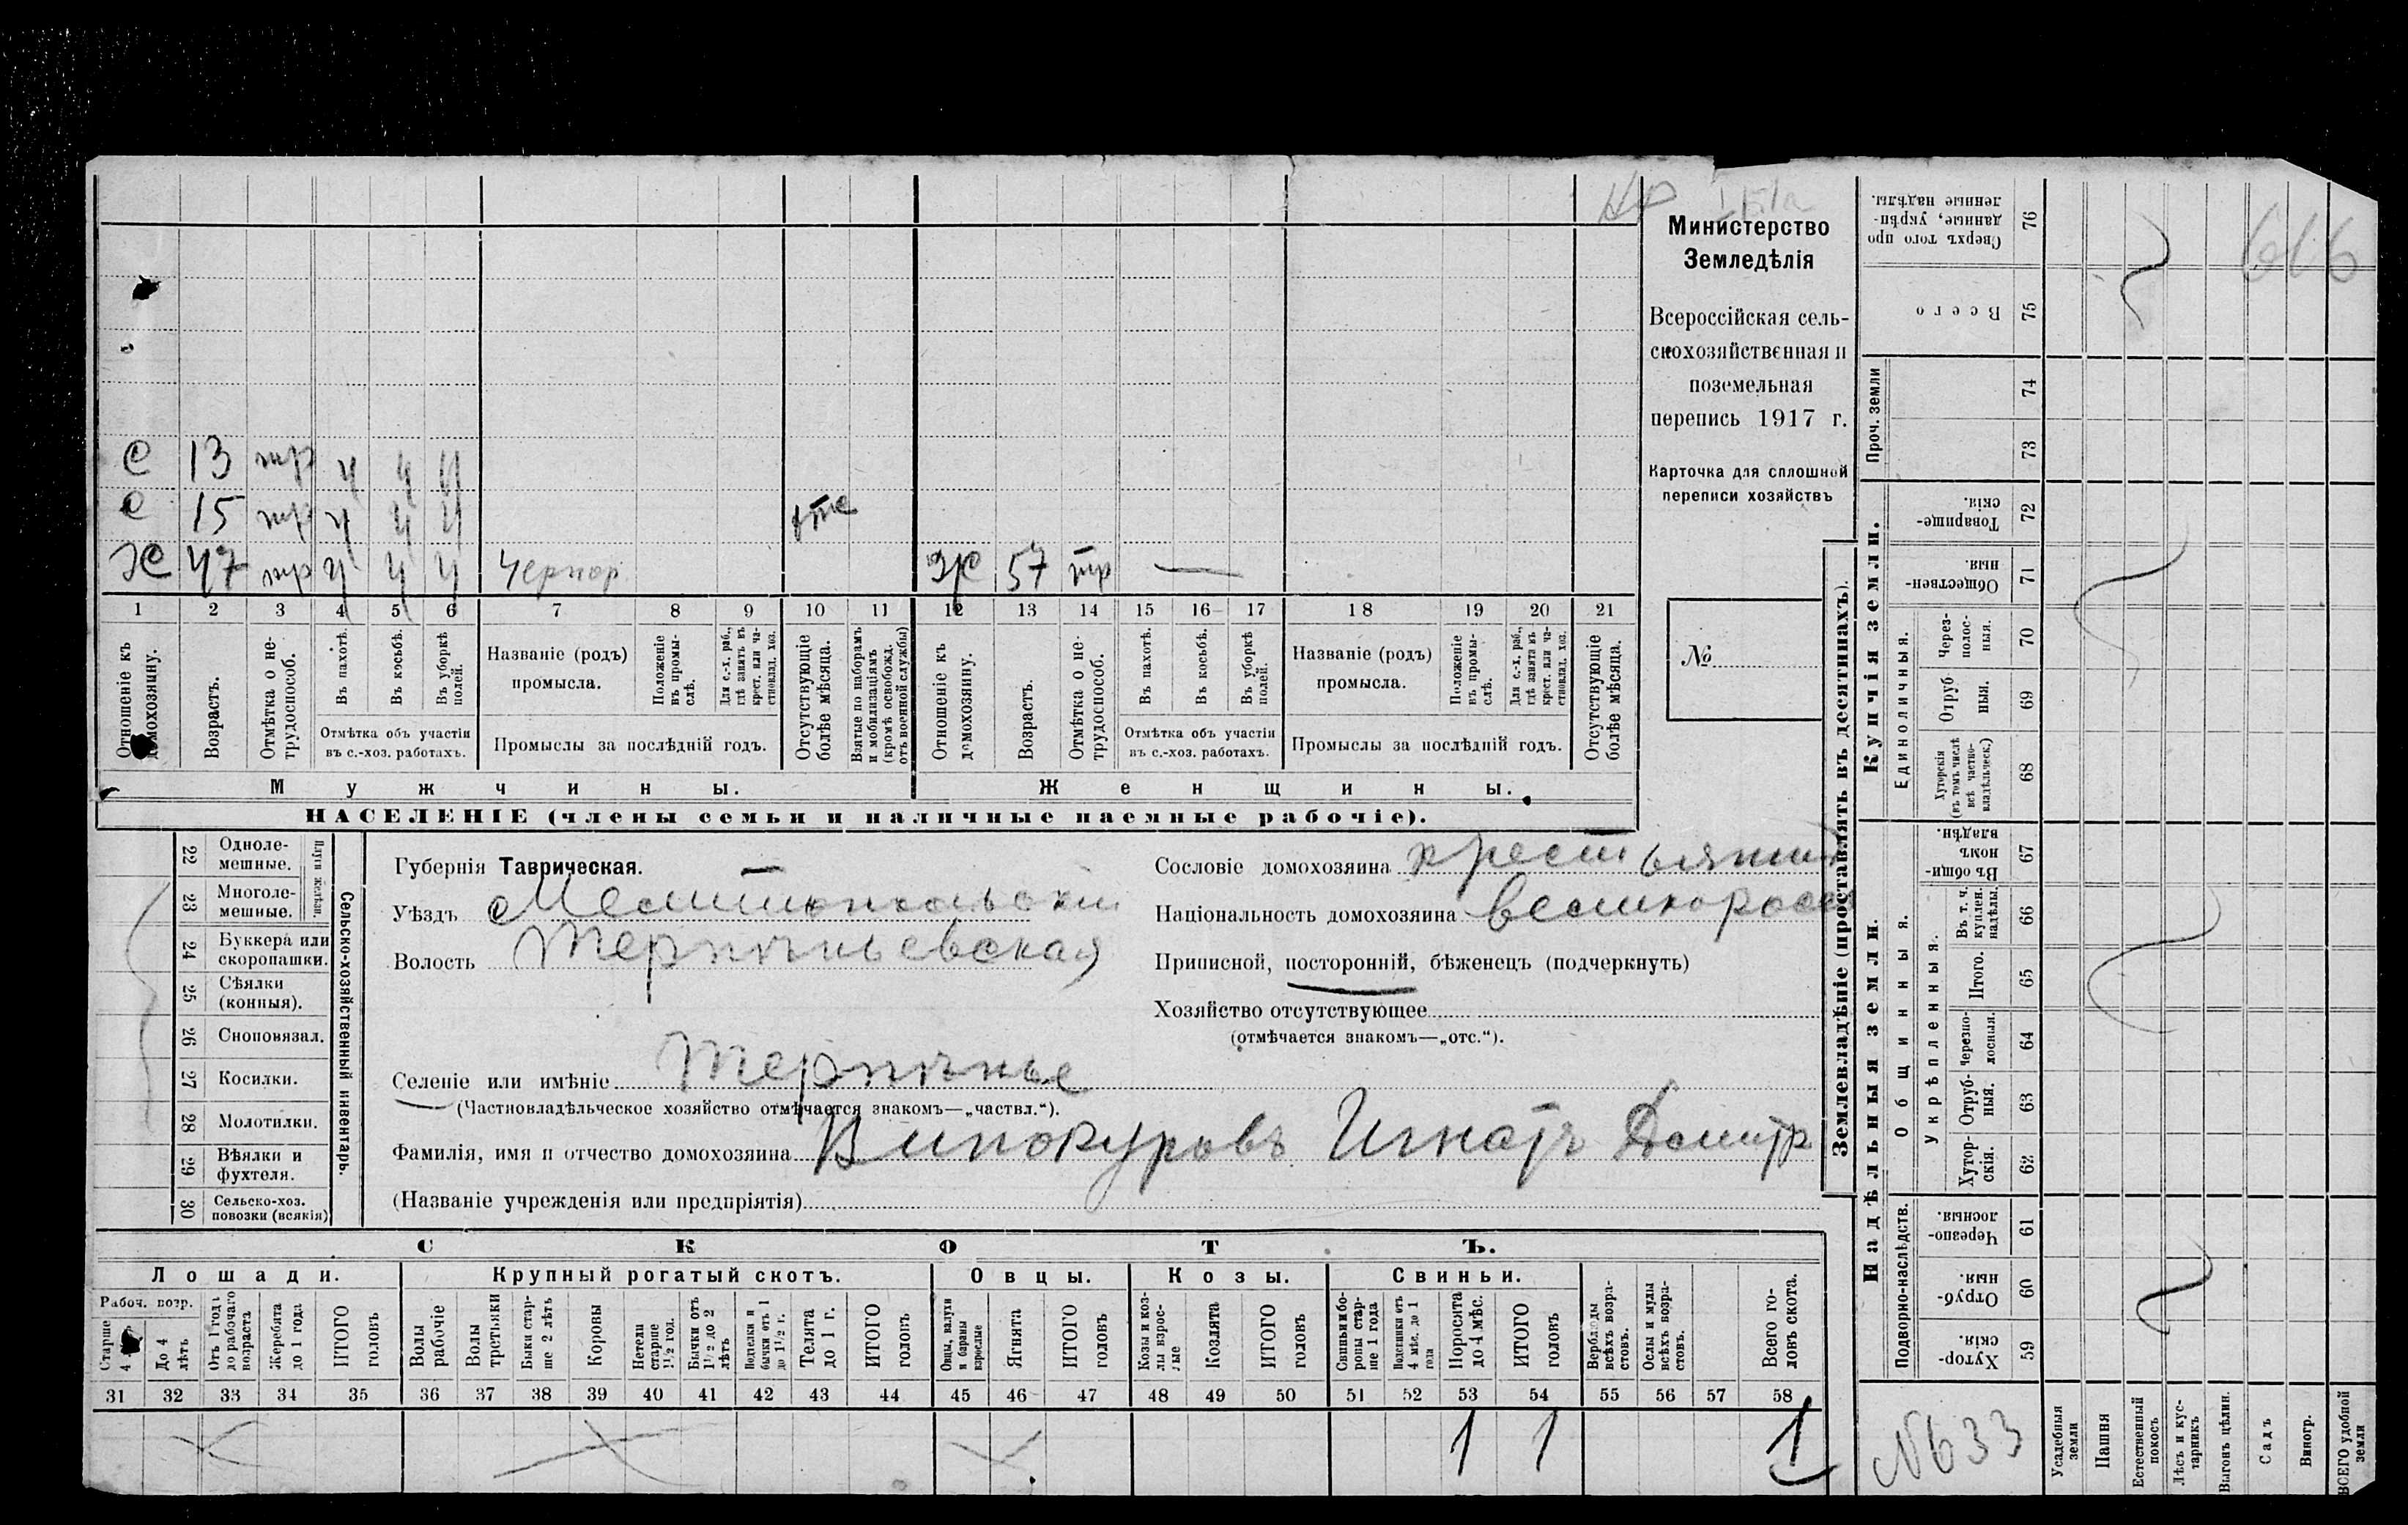 Министерство
Земледѣлія
Всероссійская сель-
скохозяйственная и
поземельная
перепись 1917 г.
Карточка для сплошной
переписи хозяйствъ
№
С 13 нр ч ч ч
С 15 нр ч ч ч отс
Х 47 нр ч ч ч Чернор Ж 57 тр —
1 2 3 4 5 6 7 8 9 10 11 12 13 14 15 16 17 18 19 20 21
Отношеніе къ домохозяину.
Возрастъ.
Отмѣтка о не-трудоспособ.
Въ пахотѣ.
Въ косьбѣ.
Въ уборкѣ полей.
Отмѣтка объ участіи
въ с.-хоз. работахъ.
Названіе (родъ)
промысла.
Положеніе въ промы-слѣ.
Для с.-х. раб., гдѣ занятъ въ крест. или ча-стновлад. хоз.
Промыслы за послѣдній годъ.
Отсутствующіе болѣе мѣсяца.
Взятые по наборамъ и мобилизаціямъ (кромѣ освобожд. отъ военной службы)
Отношеніе къ домохозяину.
Возрастъ.
Отмѣтка о не-трудоспособ.
Въ пахотѣ.
Въ косьбѣ.
Въ уборкѣ полей.
Отмѣтка объ участіи
въ с.-хоз. работахъ.
Названіе (родъ)
промысла.
Положеніе въ промы-слѣ.
Для с.-х. раб., гдѣ занята въ крест. или ча-стновлад. хоз.
Промыслы за послѣдній годъ.
Отсутствующіе болѣе мѣсяца.
Мужчины. Женщины.
НАСЕЛЕНІЕ (члены семьи и наличные наемные рабочіе).
Сельско-хозяйственный инвентарь.
Плуги желѣзн.
22 Одноле-мешные.
23 Многоле-мешные.
24 Буккера или скоропашки.
25 Сѣялки (конныя).
26 Сноповязал.
27 Косилки.
28 Молотилки.
29 Вѣялки и фухтеля.
30 Сельско-хоз. повозки (всякія)
Губернія Таврическая.
Уѣздъ Мелитопольскій
Волость Терпѣньевская
Селеніе или имѣніе Терпѣнье
(Частновладѣльческое хозяйство отмѣчается знакомъ—„частвл.“).
Фамилія, имя и отчество домохозяина Винокуровъ Игнатъ Дмитр
(Названіе учрежденія или предпріятія)
Сословіе домохозяина крестьянин
Національность домохозяина великоросс
Приписной, посторонній, бѣженецъ (подчеркнуть)
Хозяйство отсутствующее
(отмѣчается знакомъ—„отс.“).
СКОТЪ.
Лошади. Крупный рогатый скотъ. Овцы. Козы. Свиньи.
Рабоч. возр.
Старше 4
До 4 лѣтъ
Отъ 1 года до рабочаго возраста
Жеребята до 1 года
ИТОГО головъ
Волы рабочіе
Волы третьяки
Быки стар-ше 2 лѣтъ
Коровы
Нетели старше 1½ год.
Бычки отъ 1½ до 2 лѣтъ
Подтелки и бычки отъ 1 до 1½ г.
Телята до 1 г.
ИТОГО головъ
Овцы, валухи и бараны взрослые
Ягнята
ИТОГО головъ
Козы и коз-лы взрос-лые
Козлята
ИТОГО головъ
Свиньи и бо-ровы стар-ше 1 года
Подсвинки отъ 4 мѣс. до 1 года
Поросята до 4 мѣс.
ИТОГО головъ
Верблюды всѣхъ возра-стовъ.
Ослы и мулы всѣхъ возра-стовъ.
Всего го-ловъ скота.
31 32 33 34 35 36 37 38 39 40 41 42 43 44 45 46 47 48 49 50 51 52 53 54 55 56 57 58
1 1 1
Землевладѣніе (проставлять въ десятинахъ).
Купчія земли.
Надѣльныя земли.
616
76 Сверхъ того про данные, укрѣп-ленные надѣлы.
75 Всего
Проч. земли
74
73
72 Товарище-скія
71 Обществен-ныя
Единоличныя.
70 Через-полос-ныя.
69 Отруб ныя.
68 Хуторскія (въ томъ числѣ всѣ частно-владѣльческ.)
Общинныя.
67 Въ общин-номъ владѣн.
Укрѣпленныя.
66 Въ т. ч. куплен. надѣлы.
65 Итого.
64 Черезпо-лосныя.
63 Отруб-ныя.
62 Хутор-скія.
Подворно-наслѣдств.
61 Черезпо-лосныя.
60 Отруб-ныя.
59 Хутор-скія.
№633
Усадебныя земли
Пашня
Естественный покосъ
Лѣсъ и кус-тарникъ
Выгонъ цѣлин.
Садъ
Виногр.
ВСЕГО удобной земли